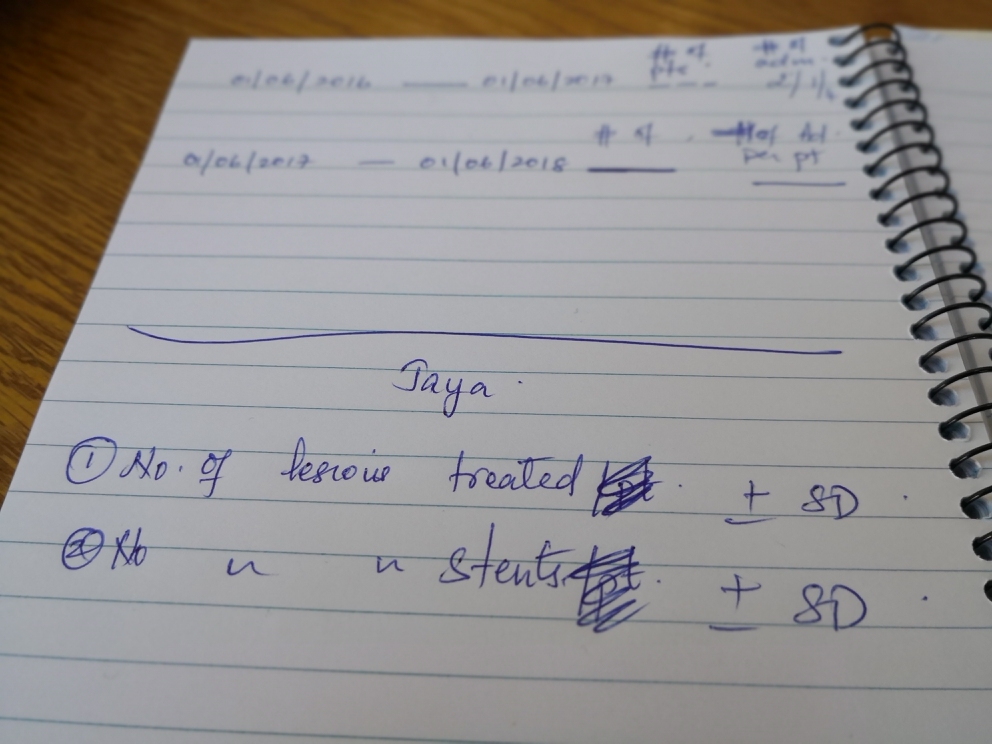 01/06/2016 — 01/06/2017 # of pts. # of adm.
01/06/2017 — 01/06/2018 # of # of Ad. per pt
Jaya.
① No. of lesions treated. ± SD.
② No " " Stents. ± SD.